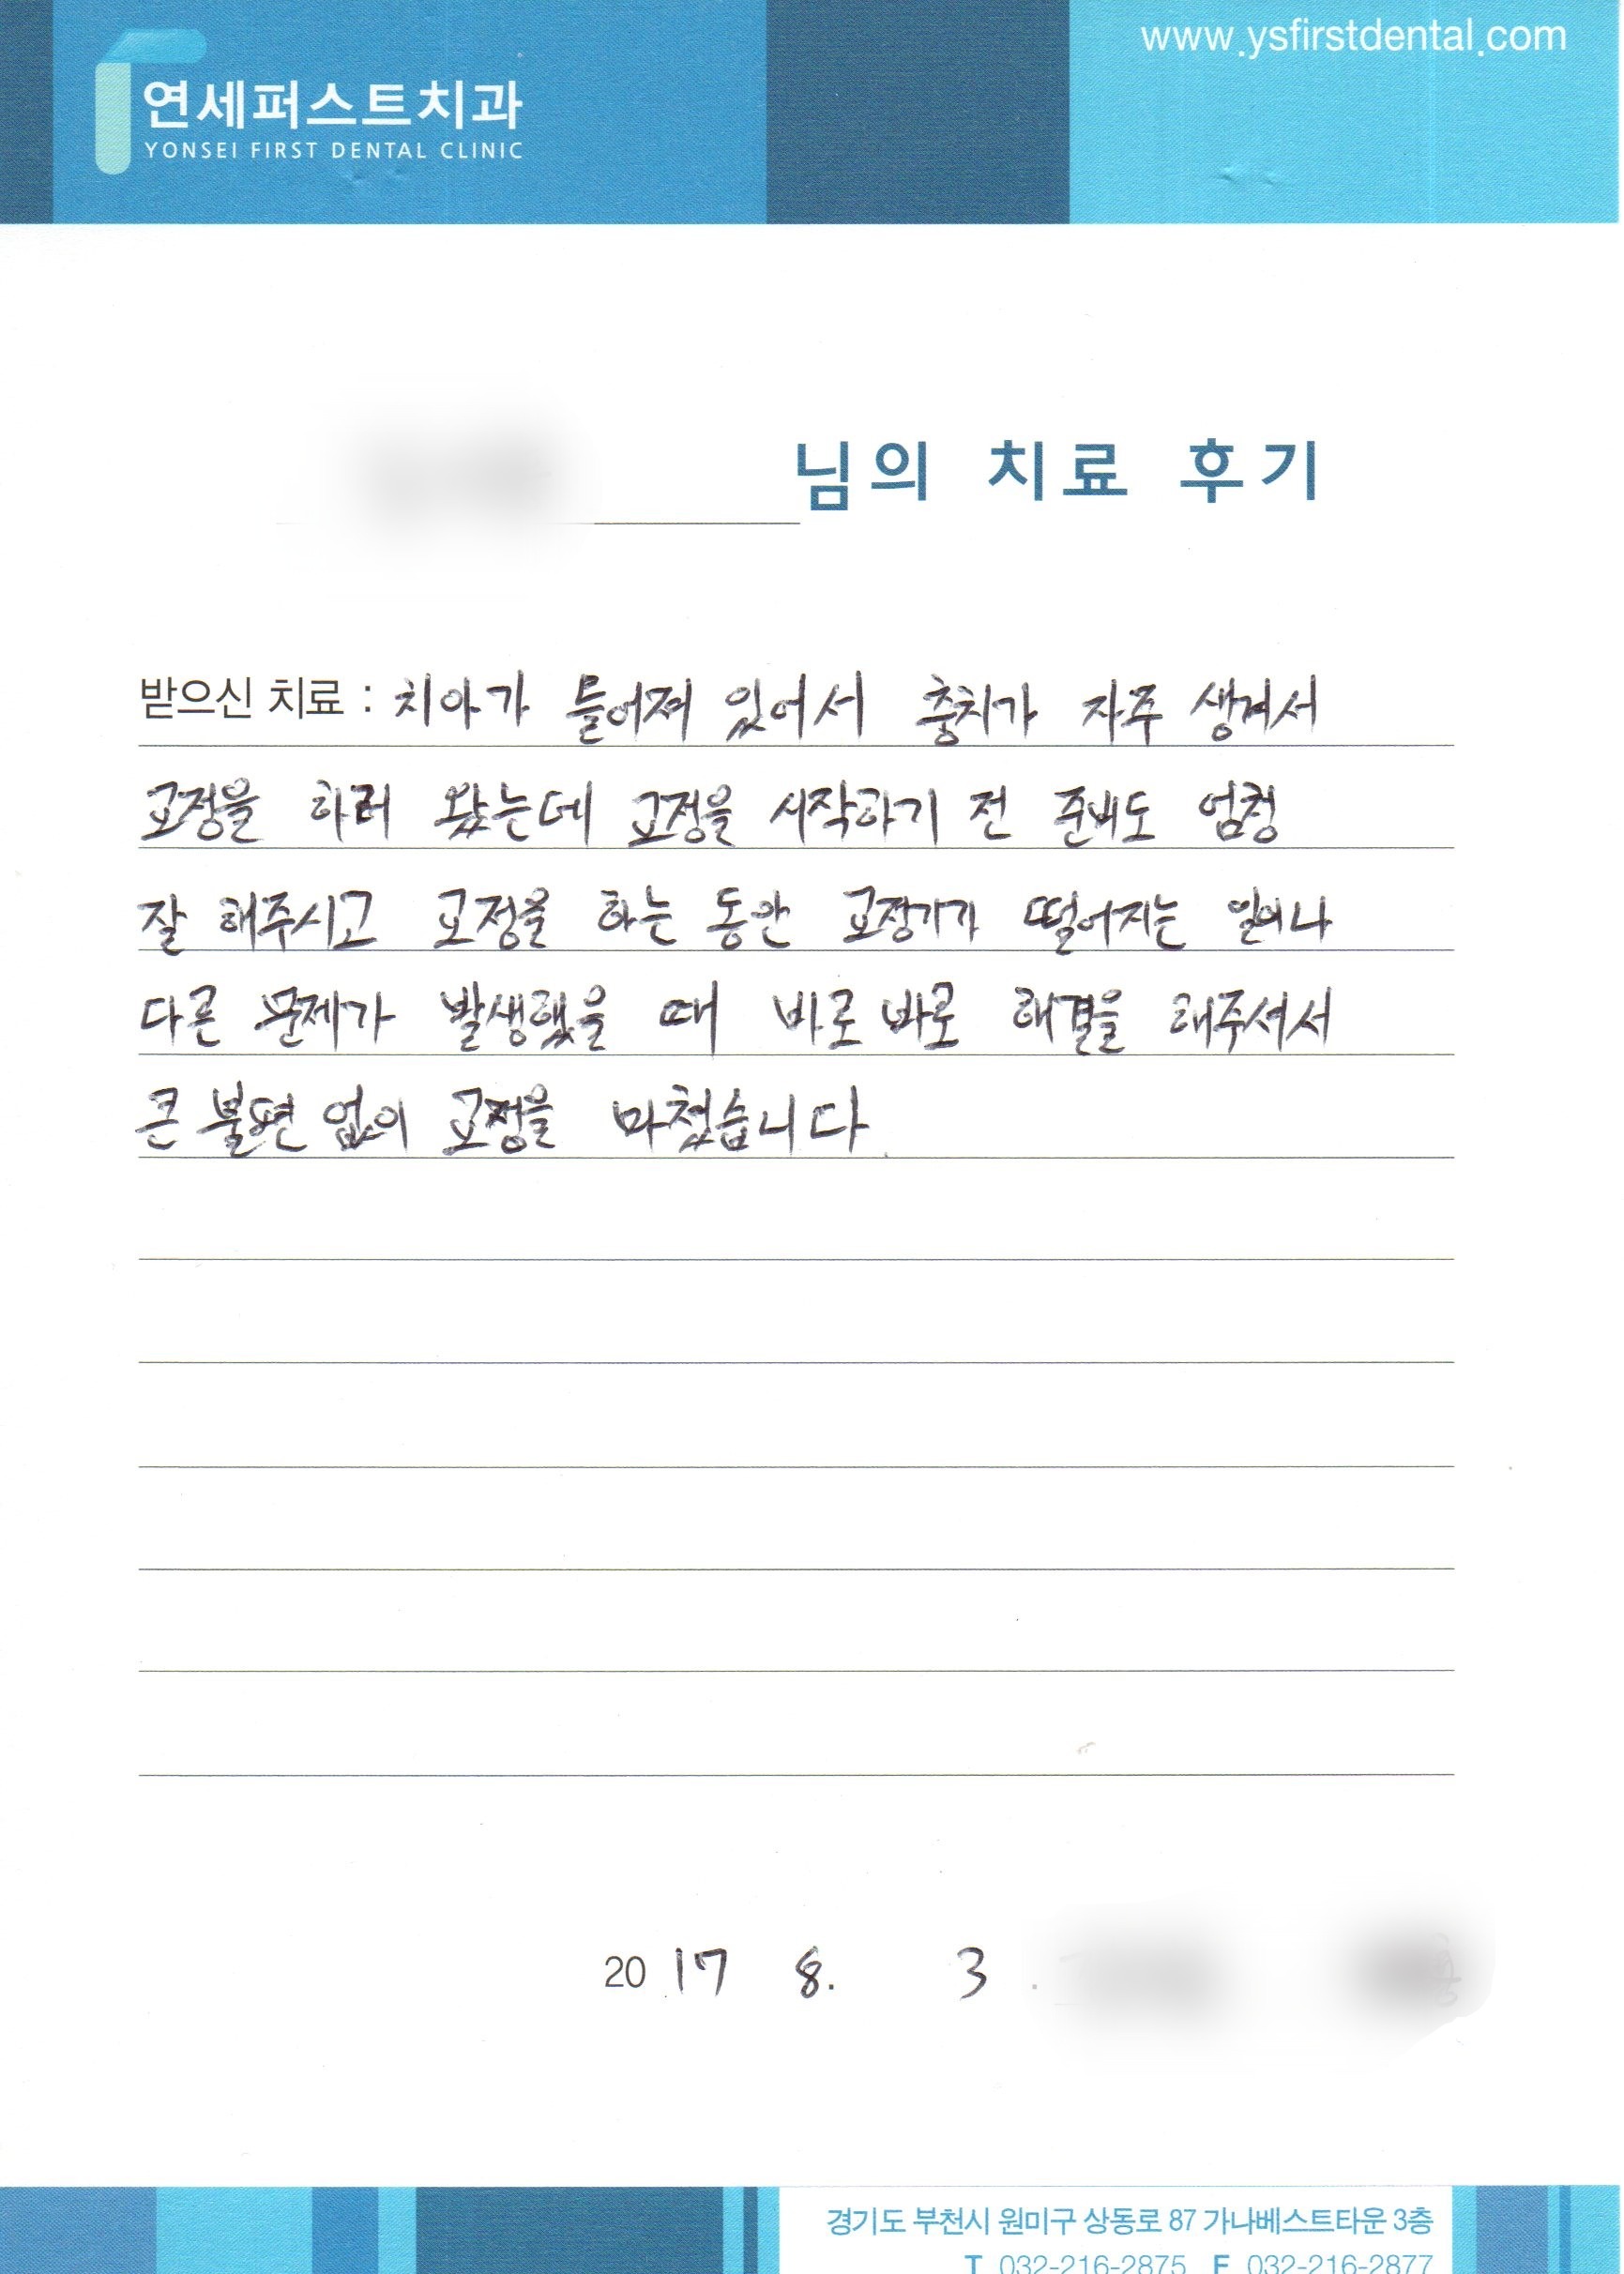 www.ysfirstdental.com
연세퍼스트치과
YONSEI FIRST DENTAL CLINIC
님의 치료 후기
받으신 치료 : 치아가 틀어져 있어서 충치가 자주 생겨서
교정을 하러 왔는데 교정을 시작하기 전 준비도 엄청
잘 해주시고 교정을 하는 동안 교정기가 떨어지는 일이나
다른 문제가 발생했을 때 바로 바로 해결을 해주셔서
큰 불편 없이 교정을 마쳤습니다.
2017 8. 3 .
경기도 부천시 원미구 상동로 87 가나베스트타운 3층
T 032-216-2875 F 032-216-2877